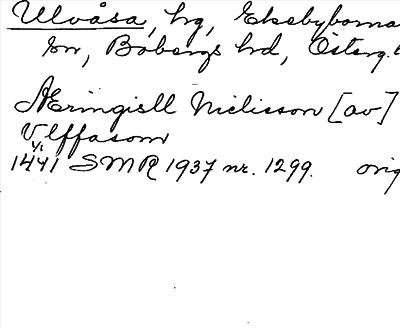 Ulvåsa, hg, Ekebyborna
sn, Bobergs hd, Österg.
Æringisll Niclisson [av]
Vlffasom
1/1
1441 SMR 1937 nr. 1299. orig